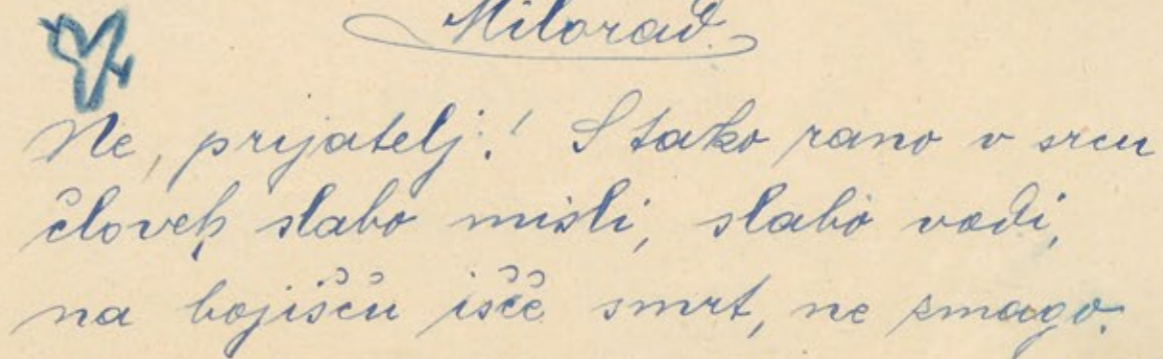 Milorad.
Ne, prijatelj! S tako rano v srcu
človek slabo misli, slabo vodi,
na bojišču išče smrt, ne zmago.